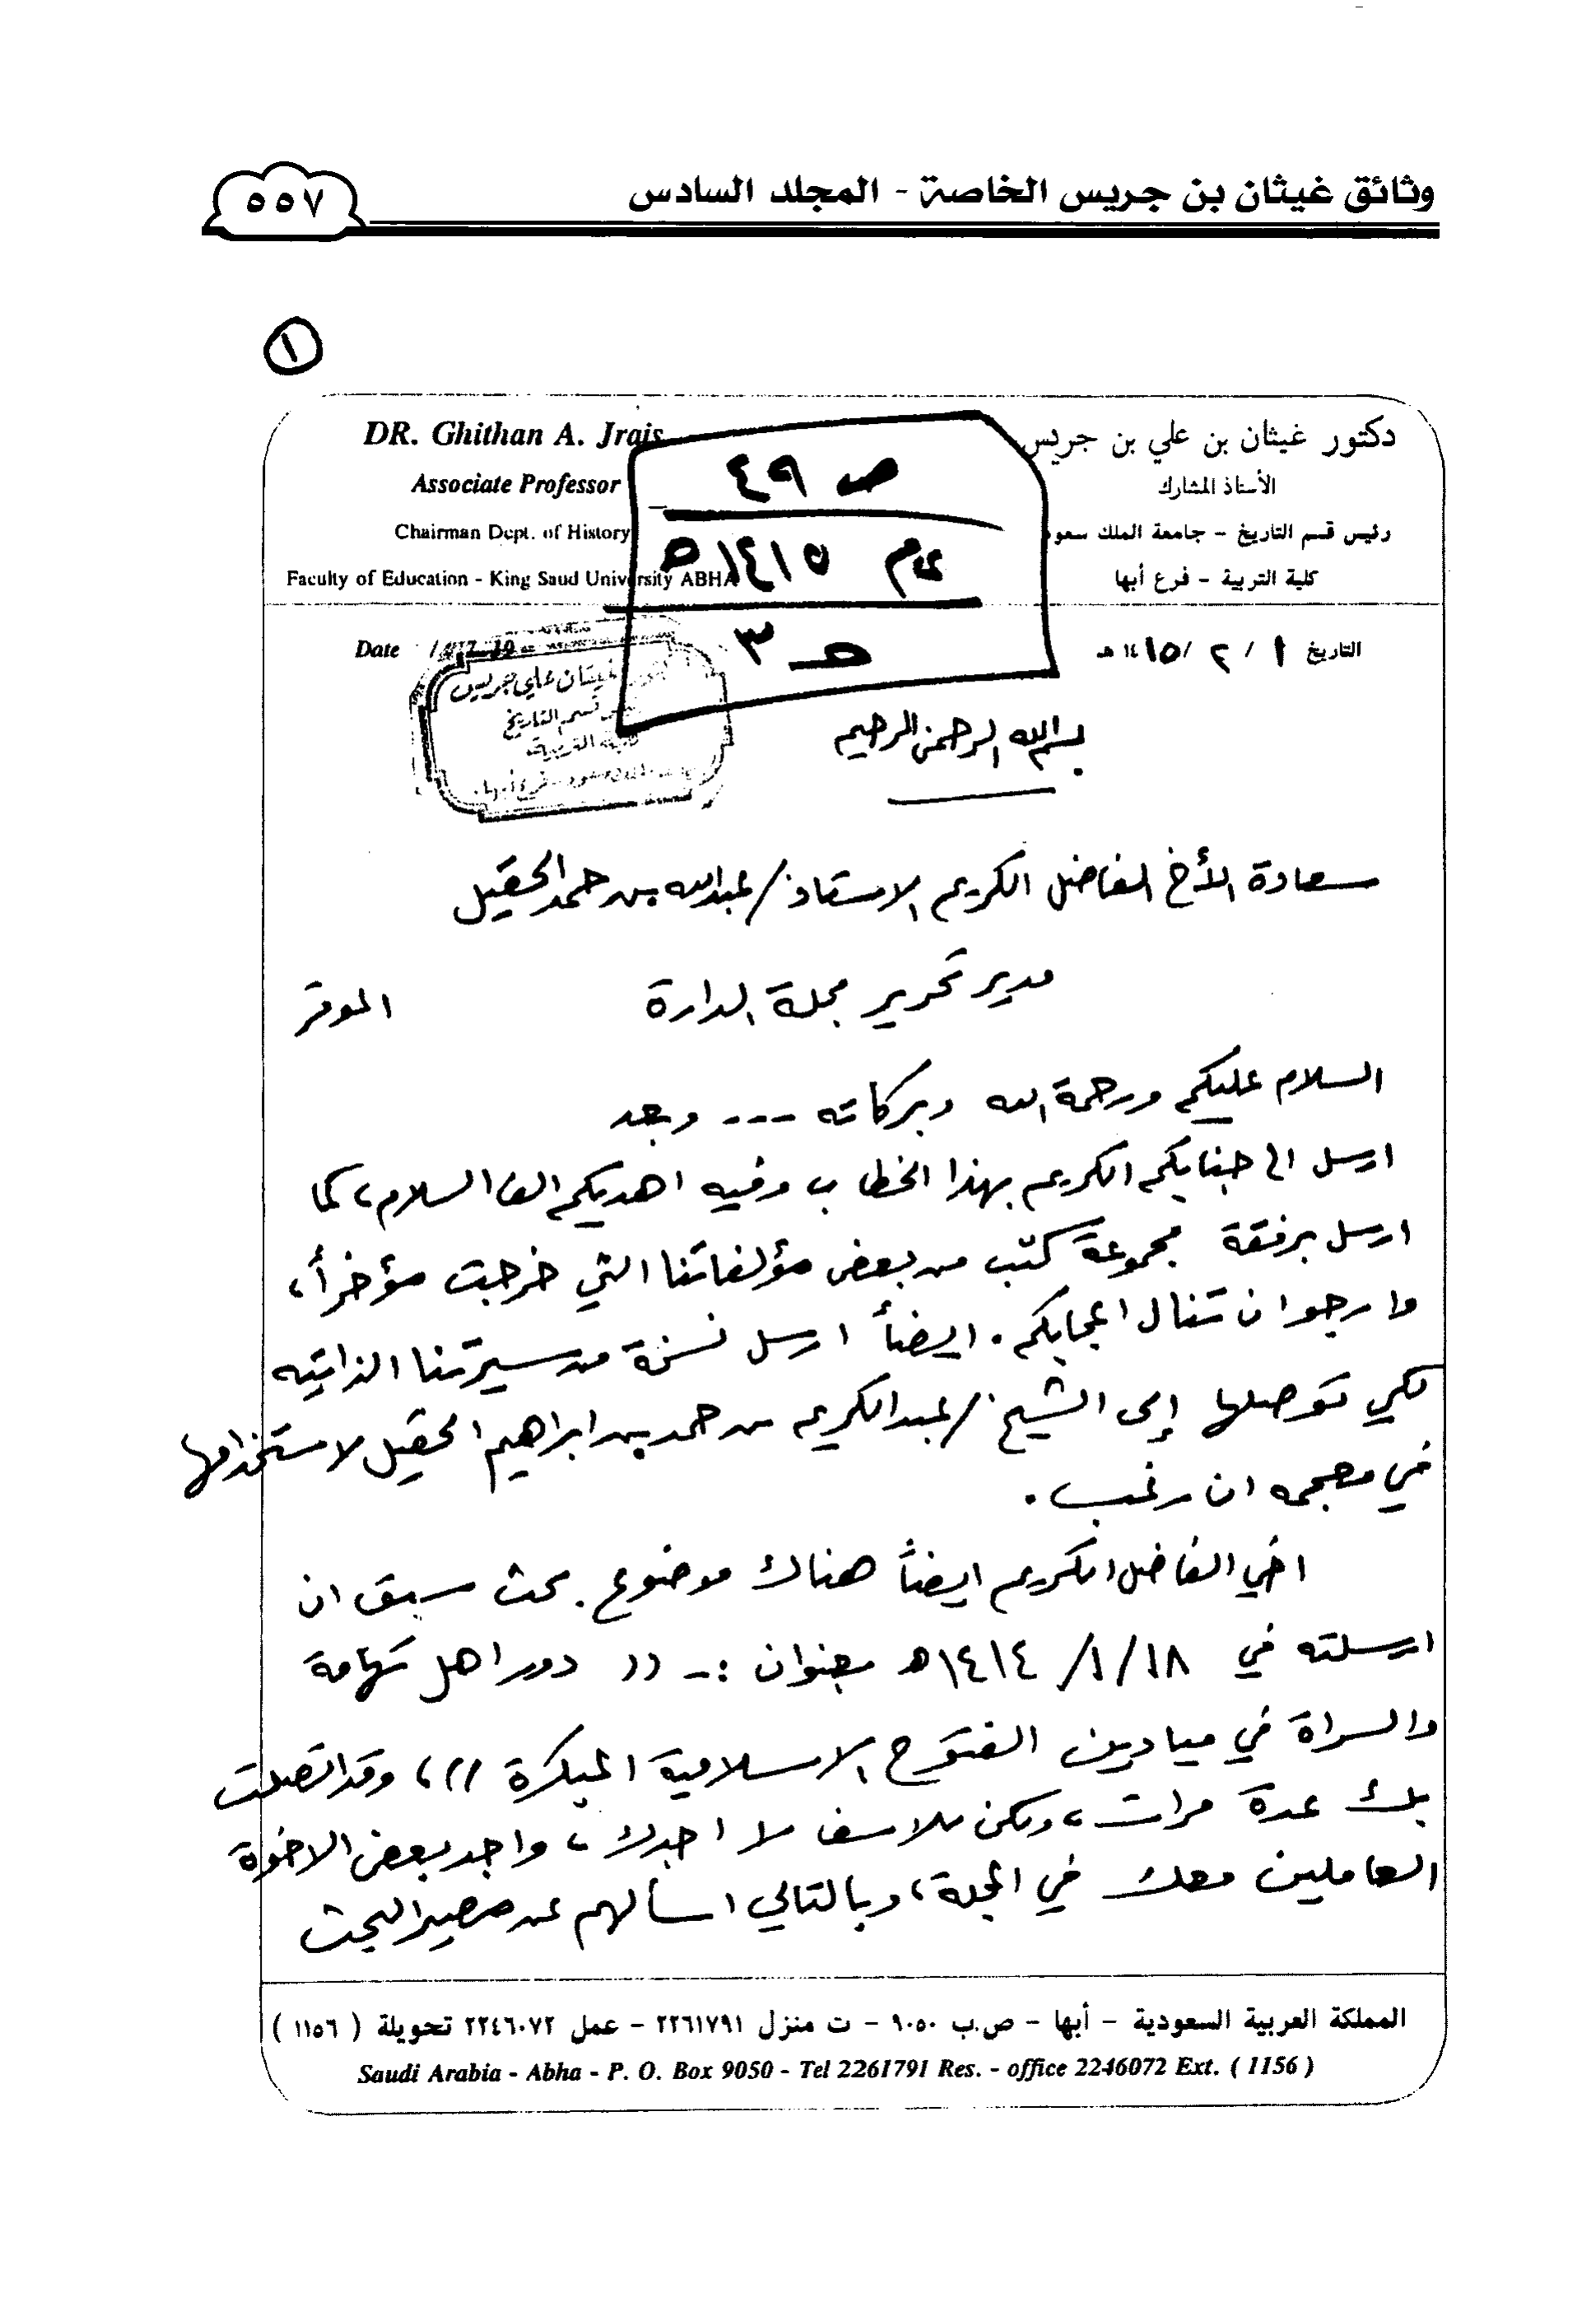 وثائق غيثان بن جريس الخاصة - المجلد السادس
٥٥٧
١
دكتور غيثان بن علي بن جريس
الأستاذ المشارك
رئيس قسم التاريخ - جامعة الملك سعود
كلية التربية - فرع أبها
DR. Ghithan A. Jrais
Associate Professor
Chairman Dept. of History
Faculty of Education - King Saud University ABHA
ص ٤٩
عام ١٤١٥هـ
التاريخ ١ / ٢ / ١٤١٥ هـ
Date
غيثان علي جريس
قسم التاريخ
كلية التربية
بسم الله الرحمن الرحيم
سعادة الأخ الفاضل الكريم الاستاذ / عبدالله بن حمد الحقيل
مدير تحرير مجلة الدارة الموقر
السلام عليكم ورحمة الله وبركاته --- وبعد
ارسل الى جنابكم الكريم بهذا الخطاب وفيه اهديكم الف السلام، كما
ارسل برفقة مجموعة كتب من بعض مؤلفاتنا التي خرجت مؤخراً،
وارجوا ان تنال اعجابكم. ايضاً ارسل نسخة من سيرتنا الذاتيه
لكي توصلها إلى الشيخ / عبدالكريم بن حمد بن ابراهيم الحقيل لاستخدامها
في معجمه ان رغب.
اخي الفاضل الكريم ايضاً هناك موضوع بحث سبق ان
ارسلته في ١٨/١/١٤١٤هـ بعنوان :- (( دور اهل تهامة
والسراة في ميادين الفتوح الاسلامية المبكرة ))، وقد اتصلت
بك عدة مرات، ولكن للاسف لا اجدك، واجد بعض الاخوة
العاملين معك في المجلة، وبالتالي اسألهم عن مصير البحث
المملكة العربية السعودية - أبها - ص.ب ٩٠٥٠ - ت منزل ٢٢٦١٧٩١ - عمل ٢٢٤٦٠٧٢ تحويلة ( ١١٥٦ )
Saudi Arabia - Abha - P. O. Box 9050 - Tel 2261791 Res. - office 2246072 Ext. ( 1156 )